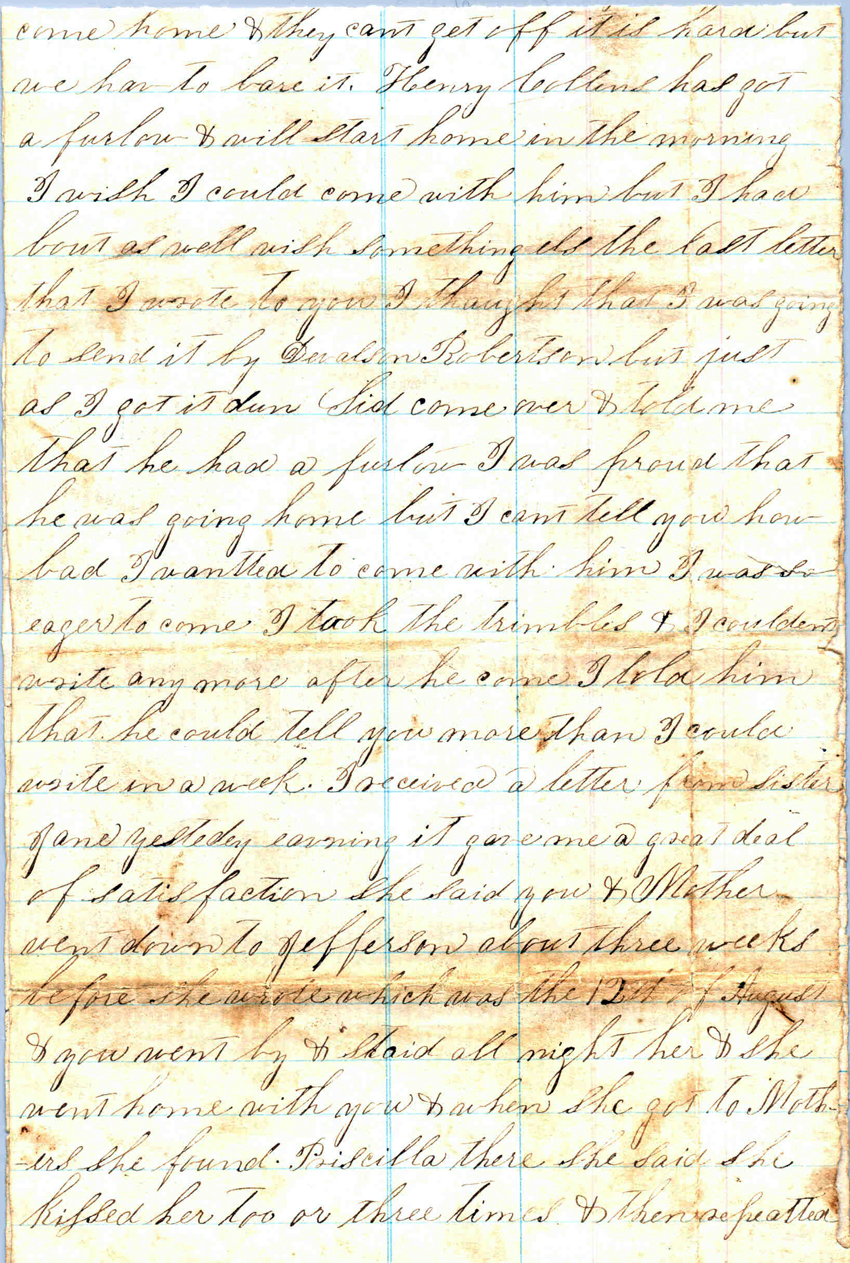 come home & they cant get off it is hard but
we hav to bare it. Henry Collens has got
a furlow & will start home in the morning
I wish I could come with him but I had
bout as well wish something els the last letter
that I wrote to you I thaught that I was going
to send it by Robertson but just
as I got it dun Sid come over & told me
that he had a furlow I was proud that
he was going home but I cant tell you how
bad I wantted to come with him I was so
eager to come I took the trimbles & I couldent
write any more after he come I told him
that he could tell you more than I could
write in a week. I received a letter from sister
Jane yestedey eavning it gave me a great deal
of satisfaction she said you & Mother
went down to Jefferson about three weeks
before she wrote which was the 12st of August
& you went by & staid all night her & she
went home with you & when she got to Moth-
-ers she found Priscilla there she said she
kissed her too or three times & then repeatted